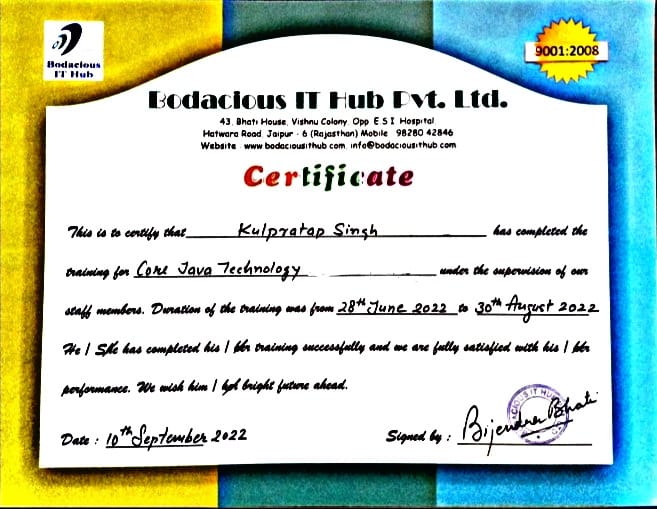 Bodacious
IT Hub
9001:2008
Bodacious IT Hub Pvt. Ltd.
43, Bhati House, Vishnu Colony, Opp. E S I Hospital
Hatwara Road, Jaipur - 6 (Rajasthan) Mobile 98280 42846
Website : www.bodaciousithub.com, info@bodaciousithub.com
Certificate
This is to certify that Kulpratap Singh has completed the
training for Core Java Technology under the supervision of our
staff members. Duration of the training was from 28th June 2022 to 30th August 2022
He / She has completed his / her training successfully and we are fully satisfied with his / her
performance. We wish him / her bright future ahead.
Date : 10th September 2022
Signed by : Bijendra Bhati